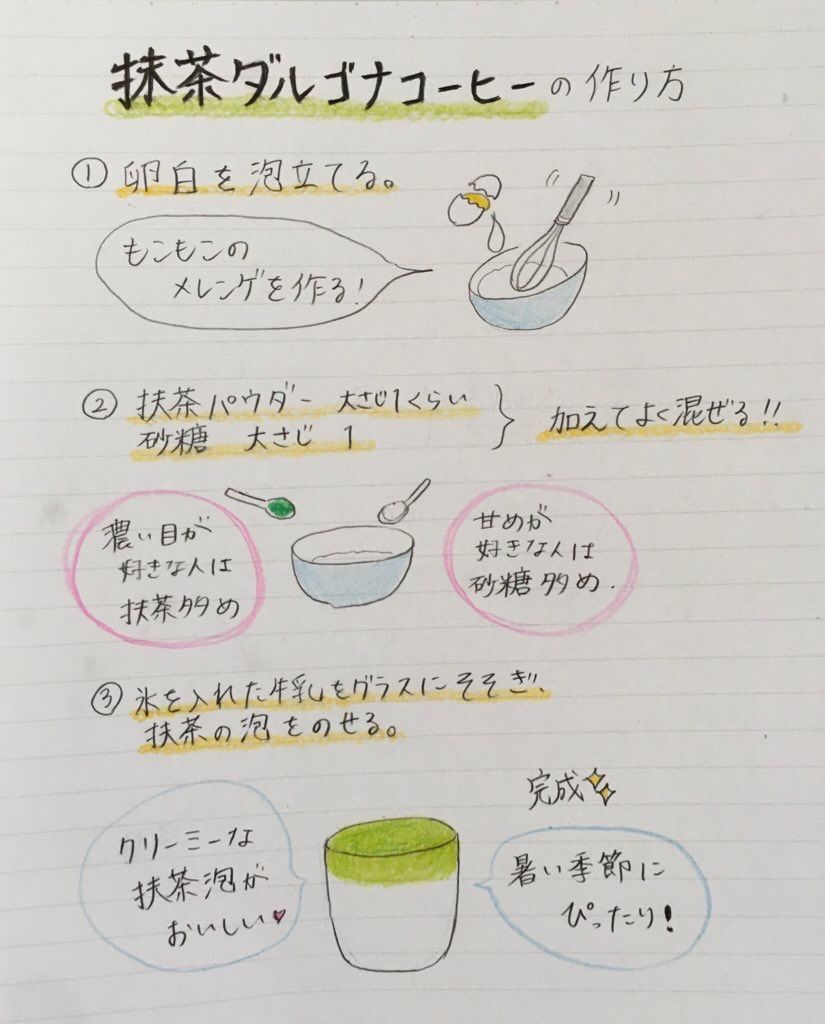 抹茶ダルゴナコーヒーの作り方
① 卵白を泡立てる。
もこもこの
メレンゲを作る!
② 抹茶パウダー 大さじ1くらい
砂糖 大さじ 1
加えてよく混ぜる!!
濃い目が
好きな人は
抹茶多め
甘めが
好きな人は
砂糖多め.
③ 氷を入れた牛乳をグラスにそそぎ、
抹茶の泡をのせる。
完成
クリーミーな
抹茶泡が
おいしい♥
暑い季節に
ぴったり!